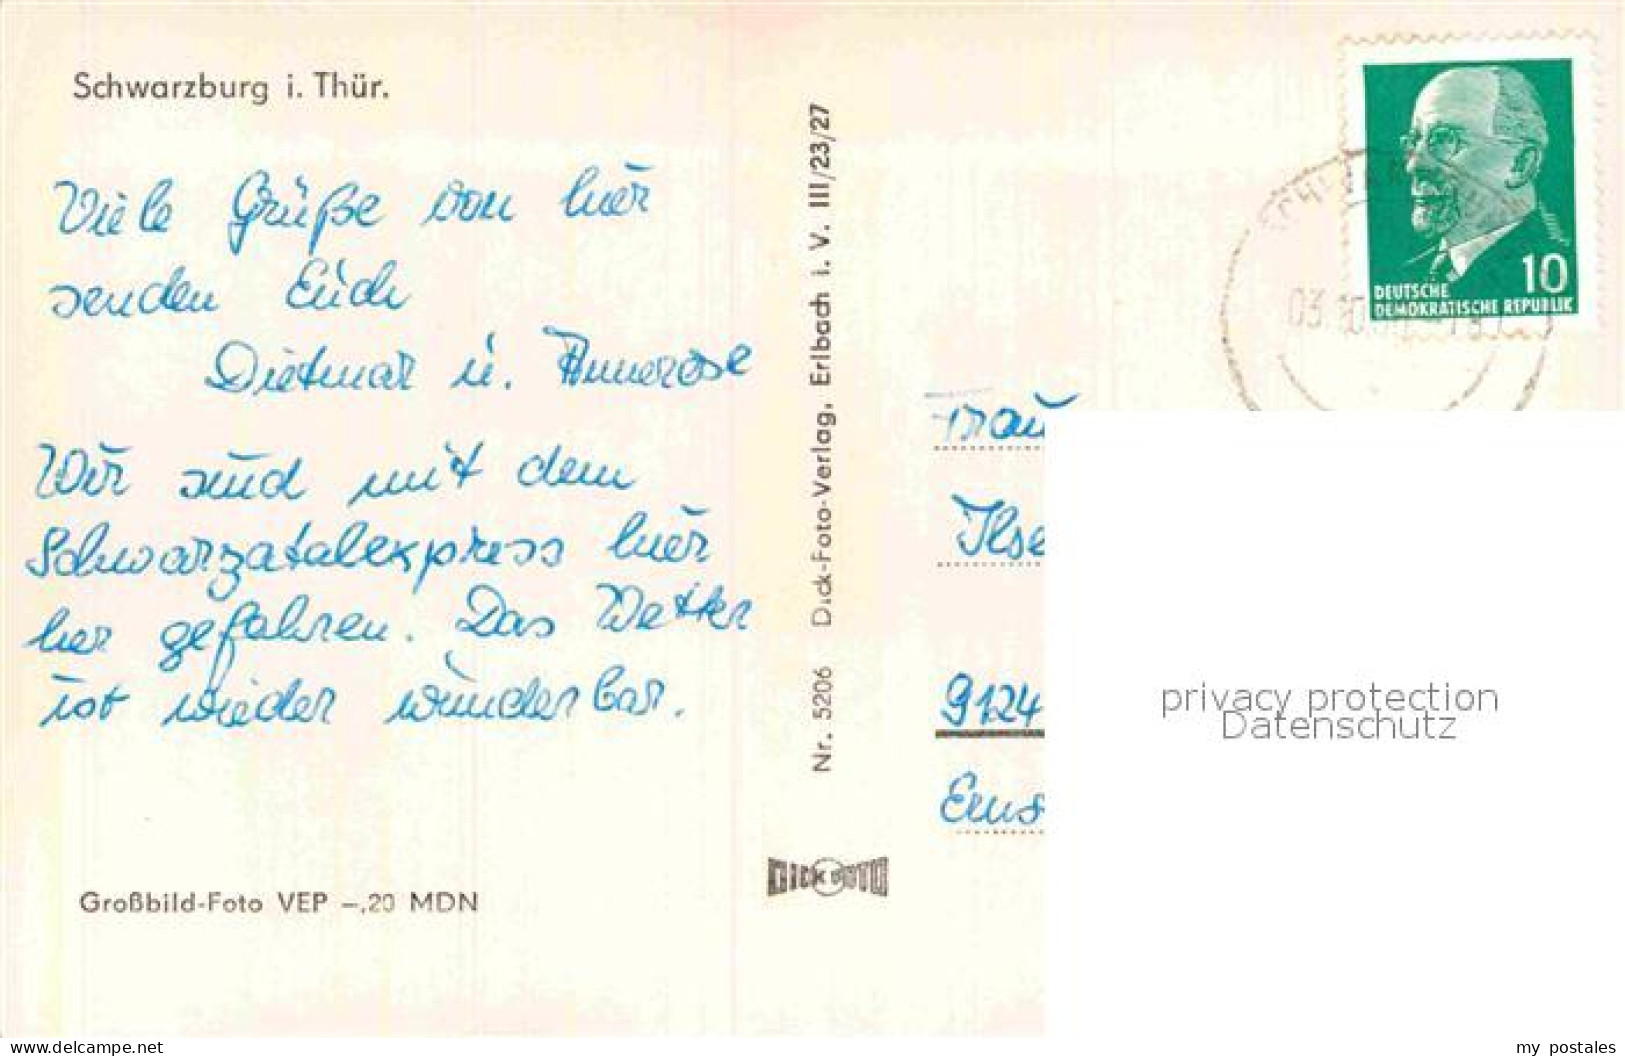 Schwarzburg i. Thür.
Viele Grüße von hier
senden Euch
Dietmar u. Annerose
Wir sind mit dem
Schwarzatalexpress hier
her gefahren. Das Wetter
ist wieder wunderbar.
Großbild-Foto VEP –,20 MDN
Nr. 5206 Dick-Foto-Verlag, Erlbach i. V. III/23/27
DICK FOTO
10
DEUTSCHE
DEMOKRATISCHE REPUBLIK
Frau
Ilse
9124
privacy protection
Datenschutz
www.delcampe.net
my_postales